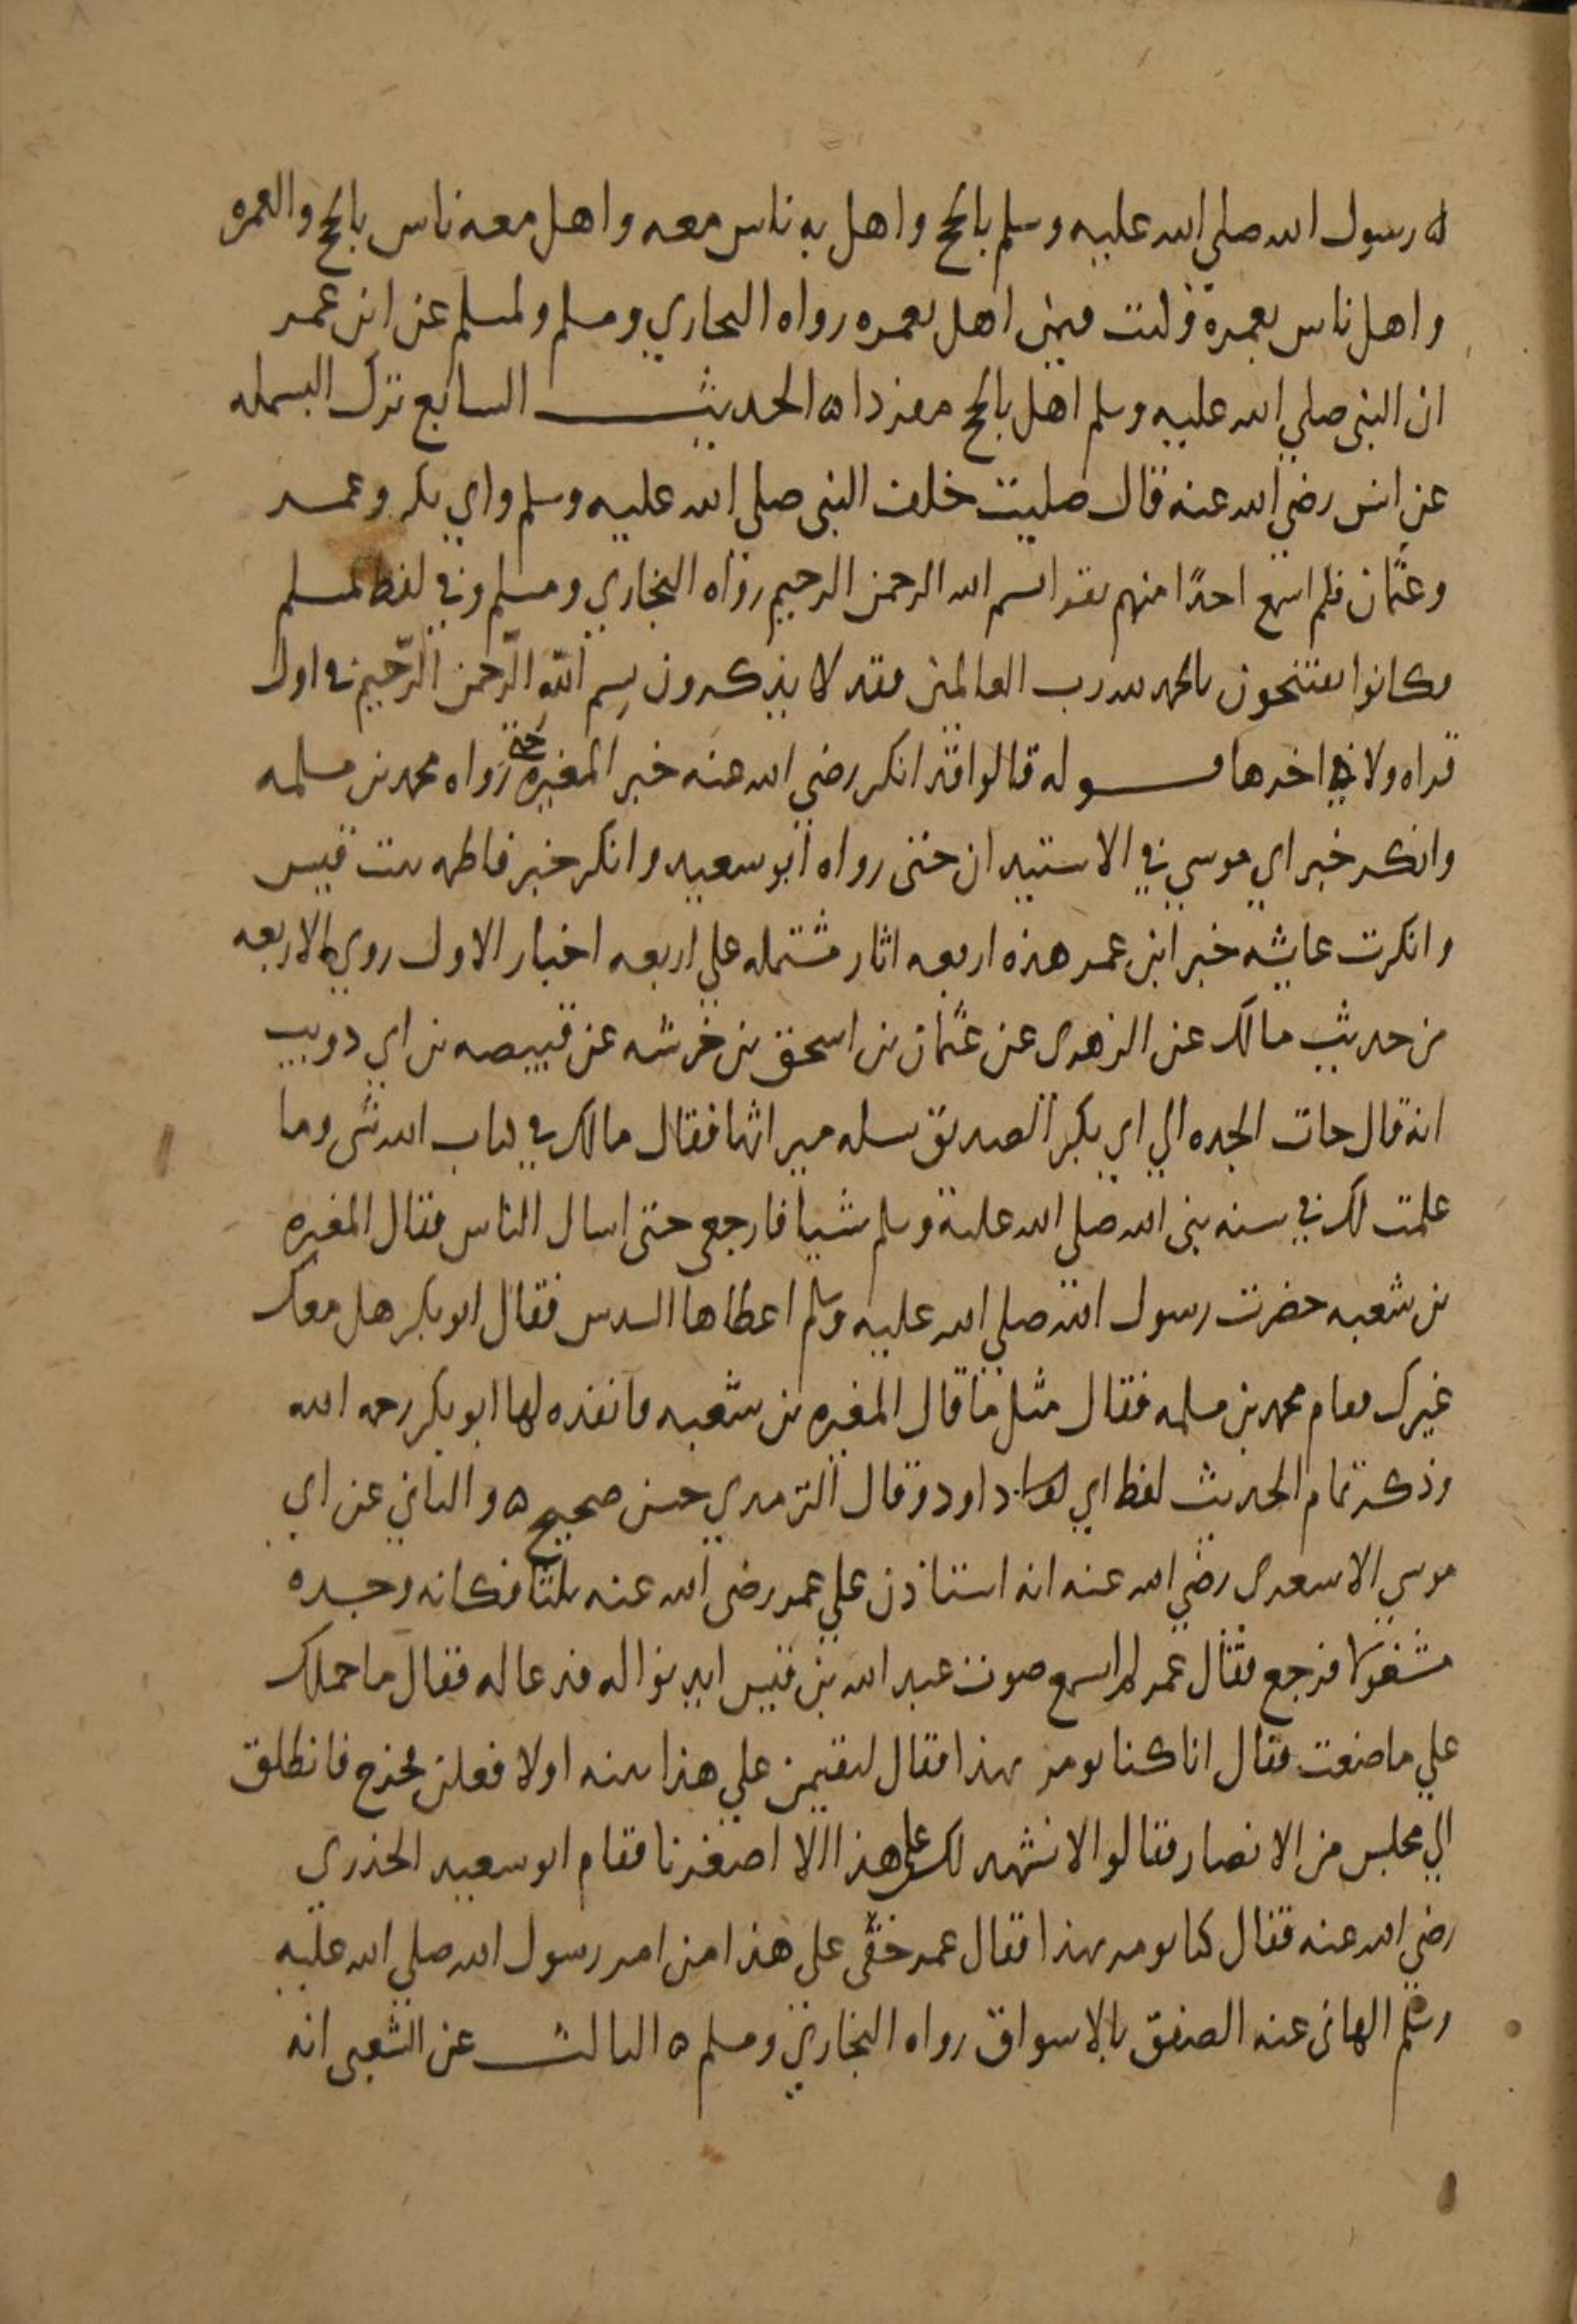 ه رسول الله صلي الله عليه وسلم بالحج واهل به ناس معه واهل معه ناس بالحج والعمره
واهل ناس بعمرة وكنت فيمن اهل بعمره رواه البخاري ومسلم ولمسلم عن ابن عمر
ان النبي صلي الله عليه وسلم اهل بالحج مفردا ه الحديث السابع ترك البسمله
عن انس رضي الله عنه قال صليت خلف النبي صلي الله عليه وسلم وابي بكر وعمر
وعثمان فلم اسمع احدًا منهم يقرا بسم الله الرحمن الرحيم رواه البخاري ومسلم وفي لفظ لمسلم
فكانوا يفتتحون بالحمد لله رب العالمين فقد لا يذكرون بِسم اللّه الرّحمن الرّحيم في اول
قراه ولا في اخرها قوله قالوا قد انكر رضي الله عنه خبر المغيره حتى رواه محمد بن مسلمه
وانكر خبر ابي موسي في الاستيدان حتى رواه ابو سعيد وانكر خبر فاطمه بنت قيس
وانكرت عايشه خبر ابن عمر هذه اربعه اثار مشتمله علي اربعه اخبار الاول روي الاربعه
من حديث مالك عن الزهرى عن عثمان بن اسحق بن خرشه عن قبيصه بن ابي دويب
انه قال جات الجده الي ابي بكر الصديق تسله ميراثها فقال مالك في كتاب الله شى وما
علمت لك في سنه نبى الله صلي الله عليه وسلم شيا فارجعى حتى اسال الناس فقال المغيره
بن شعبه حضرت رسول الله صلي الله عليه وسلم اعطاها السدس فقال ابو بكر هل معك
غيرك فقام محمد بن مسلمه فقال مثل ما قال المغيره بن شعبه فانفذه لها ابو بكر رحمه الله
وذكر تمام الحديث لفظ ابي داود وقال الترمدي حسن صحيح ه والثاني عن ابي
موسي الاسعرى رضي الله عنه انه استاذن علي عمر رضي الله عنه ثلثا فكانه وجده
مشغولا فرجع فقال عمر الم اسمع صوت عبد الله بن قيس ايدنوا له فدعا له فقال ما حملك
علي ما صنعت فقال انا كنا نومر بهذا فقال لتقيمن علي هذا بينه اولا فعلن فخرج فانطلق
الي مجلس من الانصار فقالوا لا نشهد لك على هذا الا اصغرنا فقام ابو سعيد الخدري
رضي الله عنه فقال كنا نومر بهذا فقال عمر خفى علي هذا من امر رسول الله صلي الله عليه
وسلم الهانى عنه الصفق بالاسواق رواه البخاري ومسلم ه الثالث عن الشعبى انه